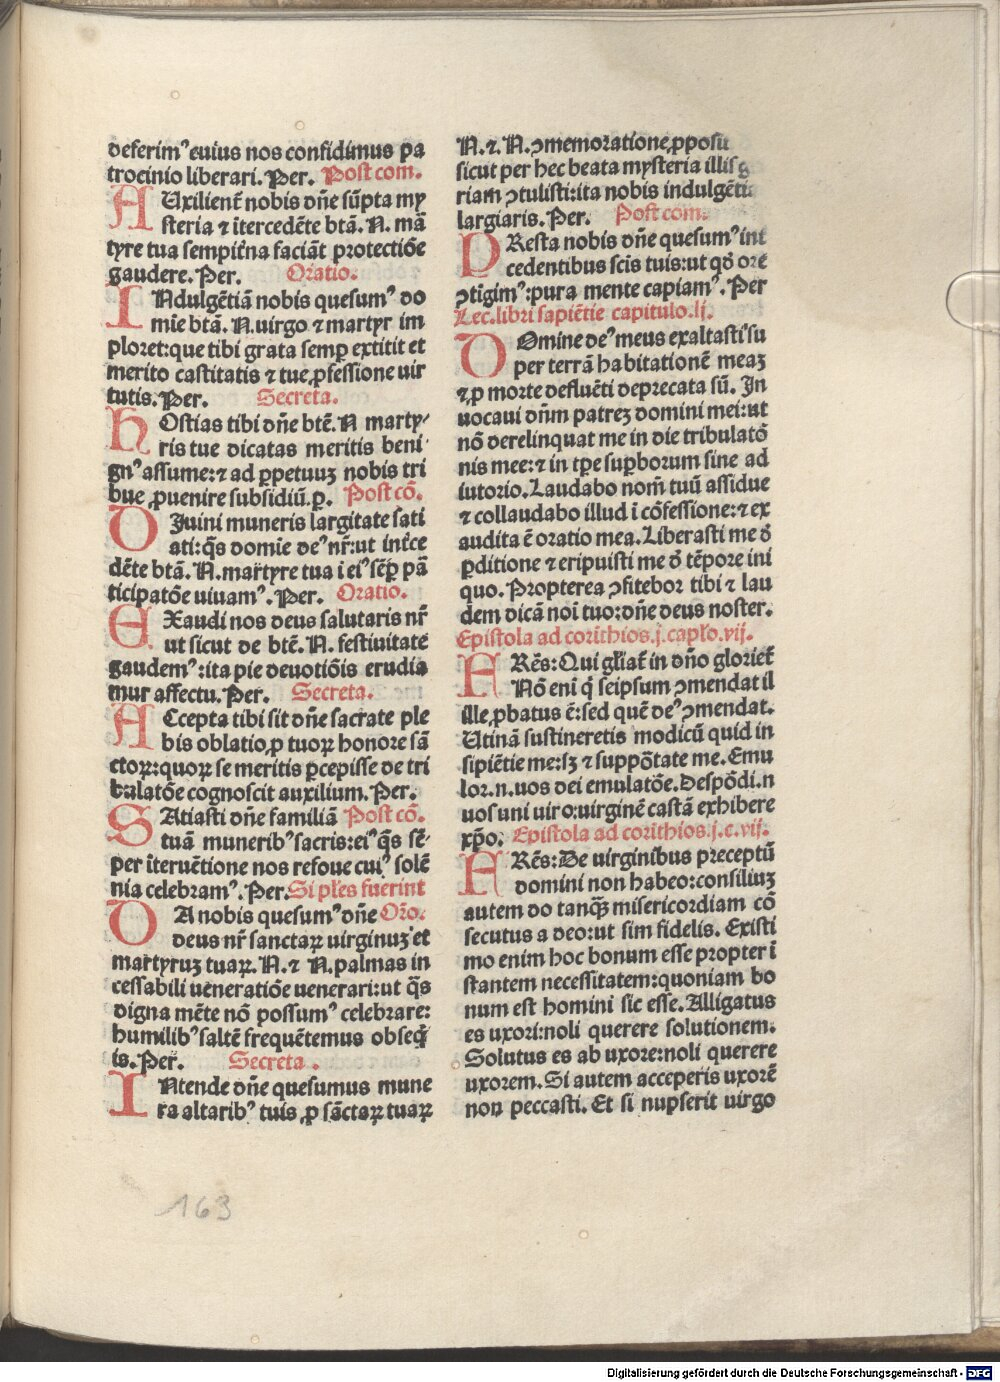 deferim⁹ euius nos confidimus pa
trocinio liberari. Per. Post com.
AUxilient̄ nobis dn̄e sūpta my
steria ⁊ ītercedēte btā. N. mā
tyre tua sempit̄na faciāt protectiōe
gaudere. Per. Oratio.
INdulgētiā nobis quesum⁹ do
mīe btā. N. virgo ⁊ martyr im
ploret: que tibi grata semꝑ extitit et
merito castitatis ⁊ tue ꝓfessione vir
tutis. Per. Secreta.
HOstias tibi dn̄e btē. N marty-
ris tue dicatas meritis beni
gn⁹ assume: ⁊ ad ꝑpetuuꝫ nobis tri
bue ꝓuenire subsidiū. ꝑ. Post cō.
DIuini muneris largitate sati
ati: q̄s domīe de⁹ nr̄: ut int̄ce
dēte btā. N. martyre tua i ei⁹ sēꝑ pā
ticipatōe uiuam⁹. Per. Oratio.
EXaudi nos deus salutaris nr̄
ut sicut de btē. N. festiuitate
gaudem⁹: ita pie deuotiōis erudia
mur affectu. Per. Secreta.
ACcepta tibi sit dn̄e sacrate ple
bis oblatio ꝓ tuoꝝ honore sā
ctoꝝ: quoꝝ se meritis ꝑcepisse de tri
bulatōe cognoscit auxilium. Per.
SAtiasti dn̄e familiā Post cō.
tuā munerib⁹ sacris: ei⁹ q̄s sē-
per īteruētione nos refoue cui⁹ solē
nia celebram⁹. Per. Si ples fuerint
DA nobis quesum⁹ dn̄e Orō.
deus nr̄ sanctaꝝ uirginuꝫ et
martyruꝫ tuaꝝ. N. ⁊ N. palmas in
cessabili ueneratiōe uenerari: ut q̄s
digna mēte nō possum⁹ celebrare:
humilib⁹ saltē frequētemus obseq̄
is. Per. Secreta.
INtende dn̄e quesumus mune
ra altarib⁹ tuis ꝓ sāctaꝝ tuaꝝ
N. ⁊. N. ꝯmemoratione ꝓposit
sicut per hec beata mysteria illis g
riam ꝯtulisti: ita nobis indulgēti
largiaris. Per. Post com.
PResta nobis dn̄e quesum⁹ int
cedentibus scīs tuis: ut qd̄ ore
ꝯtigim⁹: pura mente capiam⁹. Per
Lec. libri sapiētie capitulo. lj.
DOmine de⁹ meus exaltasti su
per terrā habitationē meaꝫ
⁊ ꝓ morte defluēti deprecata sū. In
uocaui dn̄m patreꝫ domini mei: ut
nō derelinquat me in die tribulatō
nis mee: ⁊ in tꝑe suꝑborum sine ad
iutorio. Laudabo nom̄ tuū assidue
⁊ collaudabo illud ī cōfessione: ⁊ ex
audita ē oratio mea. Liberasti me d̄
ꝑditione ⁊ eripuisti me d̄ tēpore ini
quo. Propterea ꝯfitebor tibi ⁊ lau
dem dicā noī tuo: dn̄e deus noster.
Epistola ad corithios. j. capl̄o. vij.
FRēs: Qui gl̄iat̄ in dn̄o gloriet̄
Nō enī q̄ seipsum ꝯmendat il
llle ꝓbatus ē: sed quē de⁹ ꝯmendat.
Utinā sustineretis modicū quid in
sipiētie me: sꝫ ⁊ suppōtate me. Emu
lor. n. uos dei emulatōe. Despōdi. n
uos uni uiro: uirginē castā exhibere
xp̄o. Epistola ad corithios. j. c. vij.
FRēs: De uirginibus preceptū
domini non habeo: consiliuꝫ
autem do tanqꝫ misericordiam cō
secutus a deo: ut sim fidelis. Existi
mo enim hoc bonum esse propter ī
stantem necessitatem: quoniam bo
num est homini sic esse. Alligatus
es uxori: noli querere solutionem.
Solutus es ab uxore: noli querere
uxorem. Si autem acceperis uxorē
non peccasti. Et si nupserit uirgo
163
Digitalisierung gefördert durch die Deutsche Forschungsgemeinschaft - DFG